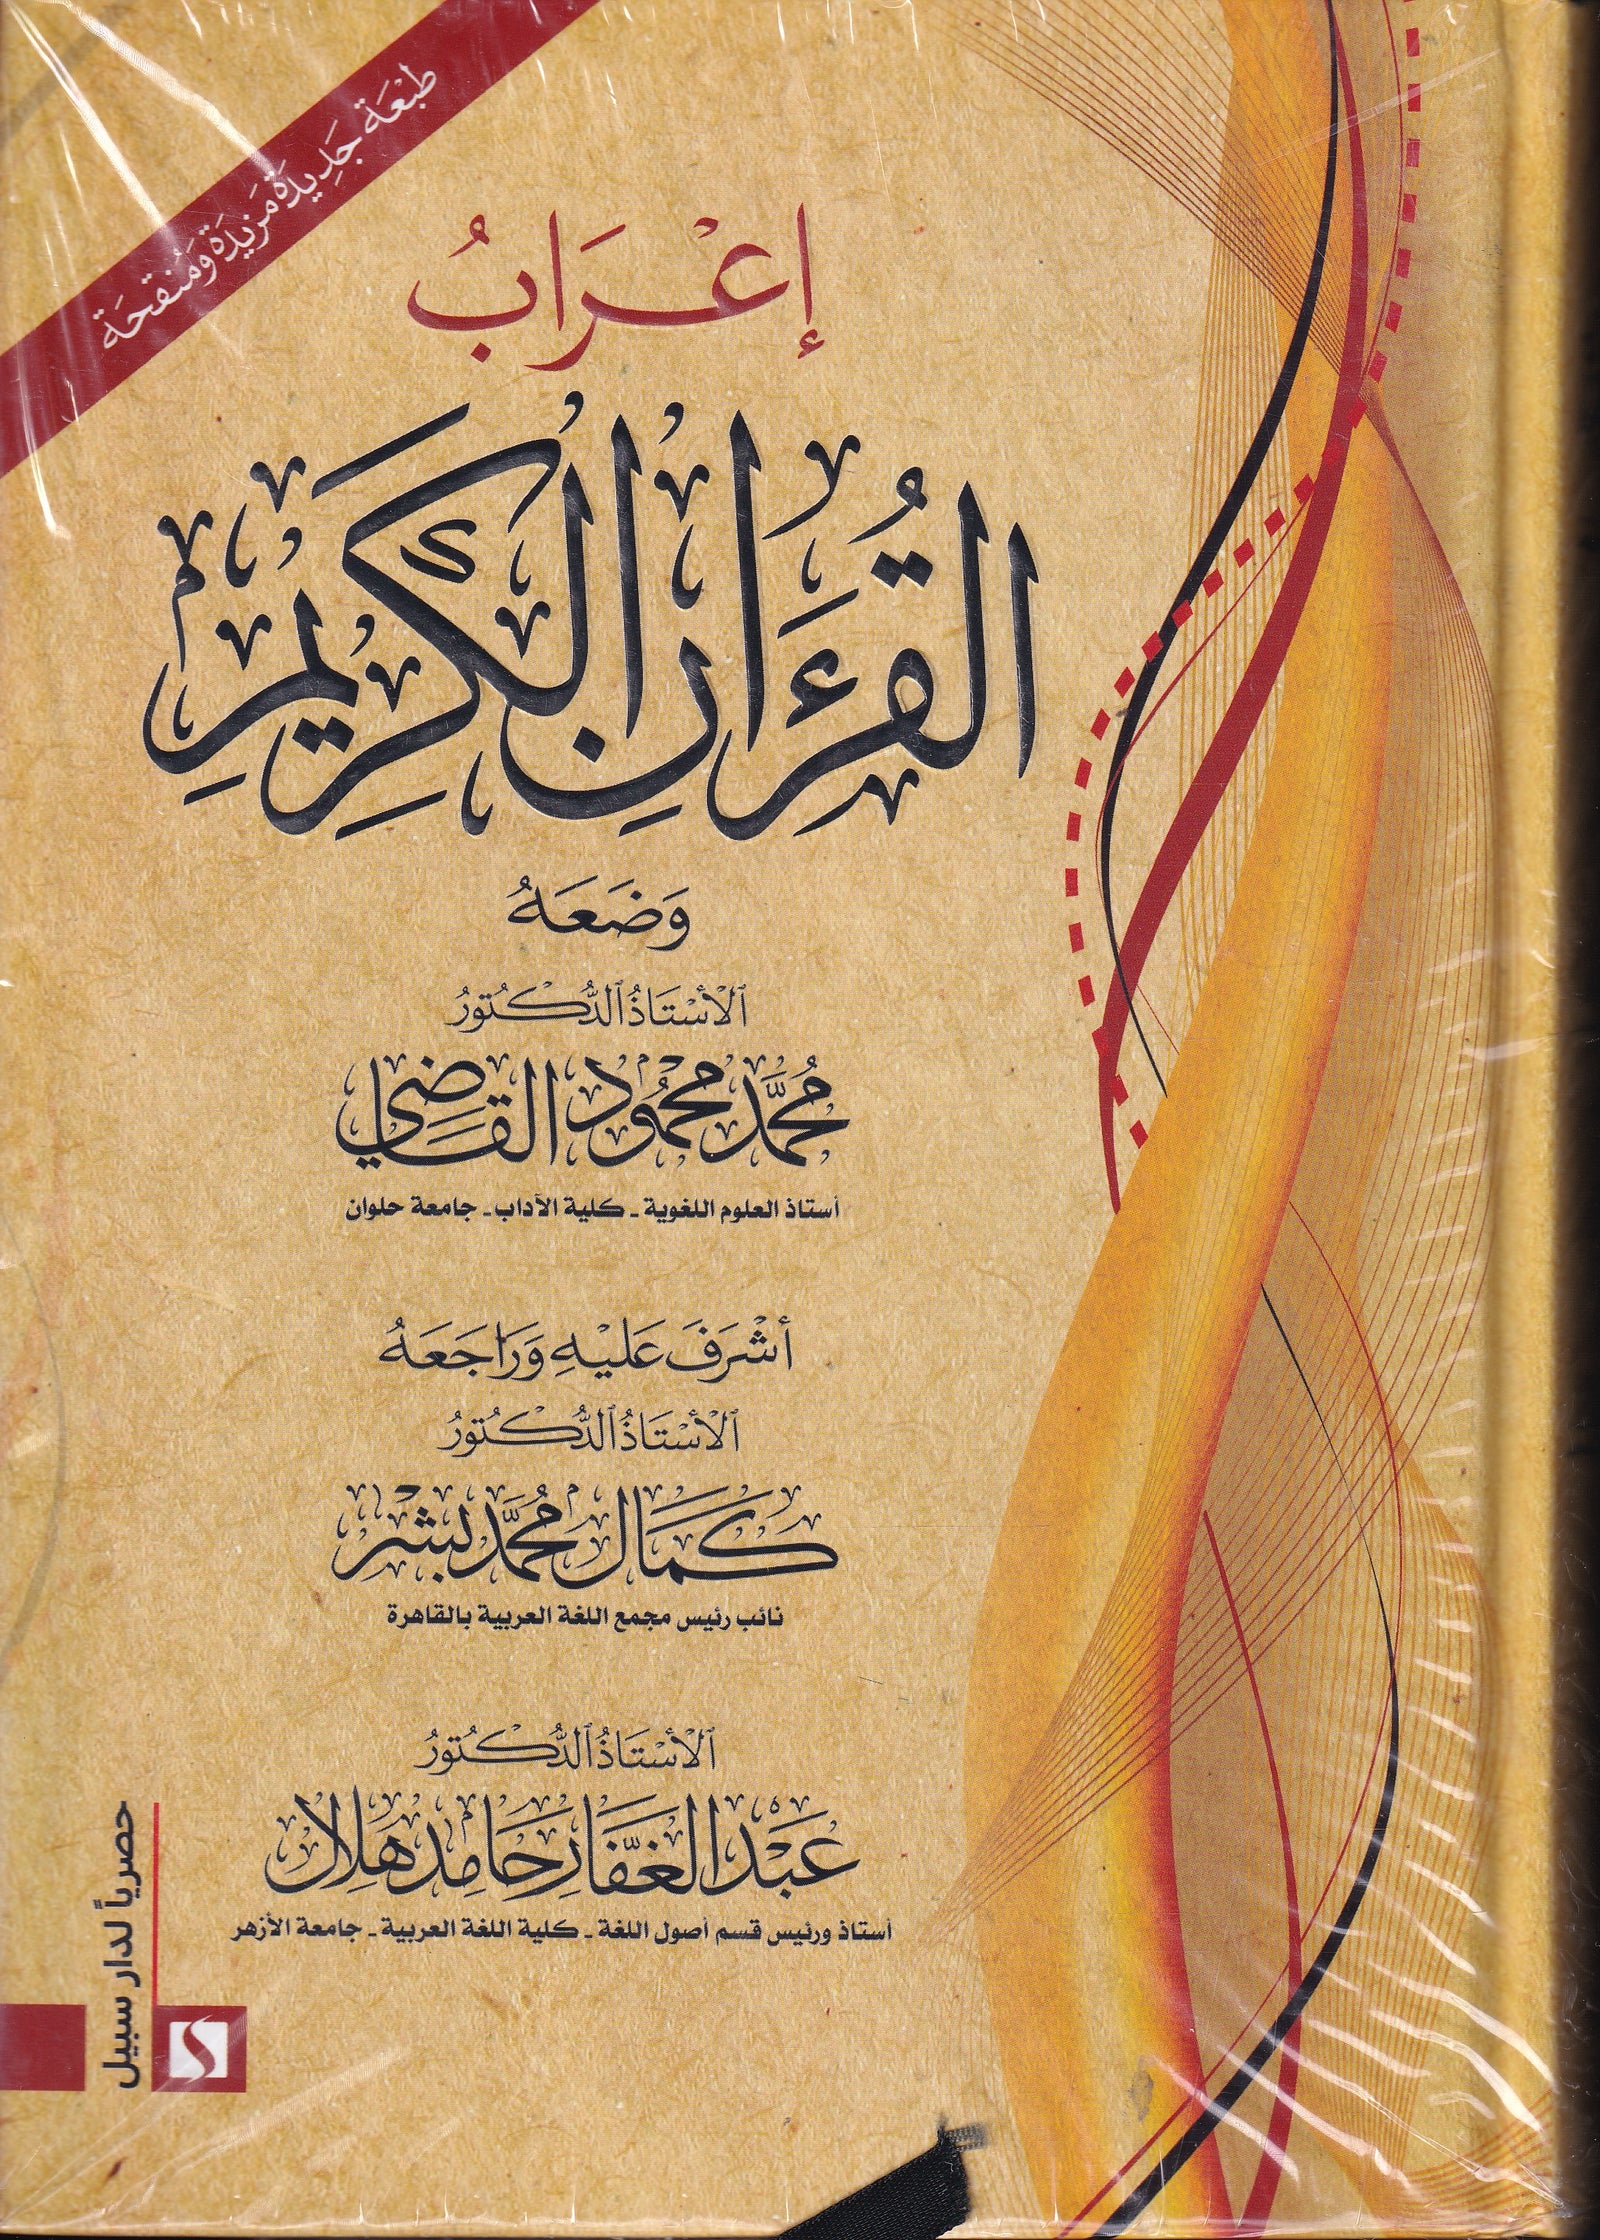 طَبْعَة جَدِيدَة مَزِيدَة وَمُنَقَّحَة
إِعْرَابُ
القُرْءَانِ الكَرِيْمِ
وَضَعَهُ
الأُسْتَاذُ الدُّكْتُورُ
مُحَمَّد مَحْمُود القَاضِي
أستاذ العلوم اللغوية - كلية الآداب - جامعة حلوان
أَشْرَفَ عَلَيْهِ وَرَاجَعَهُ
الأُسْتَاذُ الدُّكْتُورُ
كَمَال مُحَمَّد بِشْر
نائب رئيس مجمع اللغة العربية بالقاهرة
الأُسْتَاذُ الدُّكْتُورُ
عَبْد الغَفَّار حَامِد هِلَال
أستاذ ورئيس قسم أصول اللغة - كلية اللغة العربية - جامعة الأزهر
حصرياً لدار سبيل